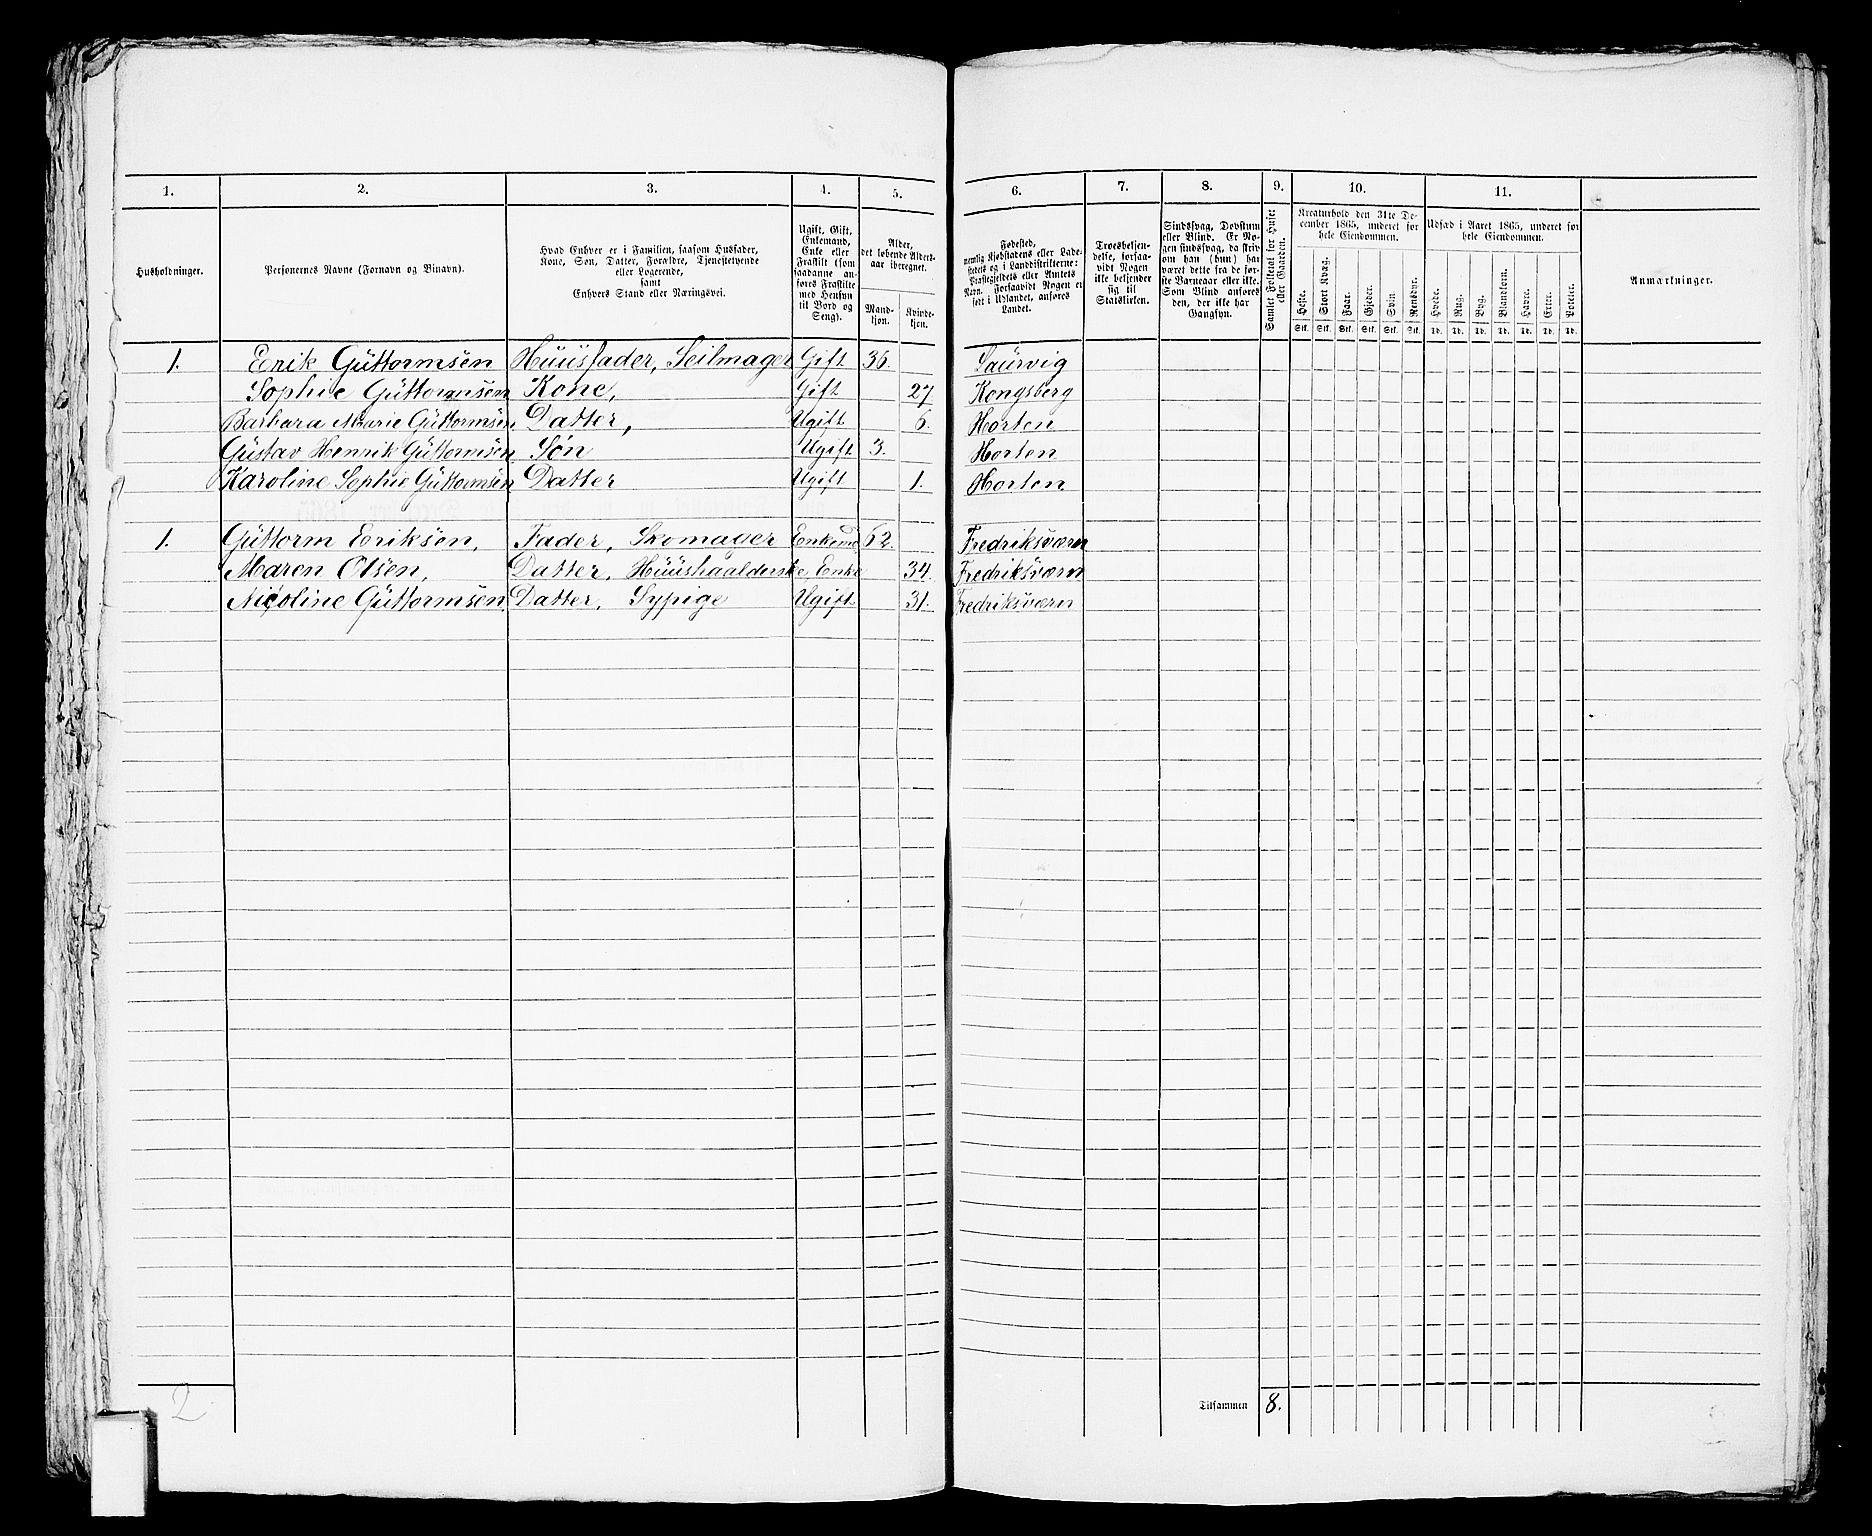 1. 2. 3. 4. 5. 6. 7. 8. 9. 10. 11.
Husholdninger.
Personernes Navne (Fornavn og Binavn).
Hvad Enhver er i Familien, saasom Husfader,
Kone, Søn, Datter, Forældre, Tjenestetyende
eller Logerende,
samt
Enhvers Stand eller Næringsvei.
Ugift, Gift,
Enkemand,
Enke eller
Fraskilt (som
saadanne an-
føres Fraskilte
med Hensyn
til Bord og
Seng).
Alder,
det løbende Alders-
aar iberegnet.
Mand-
kjøn.
Kvinde-
kjøn.
Fødested,
nemlig Kjøbstadens eller Lade-
stedets og i Landdistrikterne:
Præstegjeldets eller Amtets
Navn. Forsaavidt Nogen er
født i Udlandet, anføres
Landet.
Troesbekjen-
delse, forsaa-
vidt Nogen
ikke bekjender
sig til
Statskirken.
Sindssvag, Døvstum
eller Blind. Er No-
gen sindssvag, da skriv
om han (hun) har
været dette fra de før-
ste Barneaar eller ikke.
Som Blind anføres
den, der ikke har
Gangsyn.
Samlet Folketal for Huset
eller Gaarden.
Kreaturhold den 31te De-
cember 1865, underet for
hele Eiendommen.
Heste. Stort Kvæg. Faar. Gjeder. Svin. Rensdyr.
Stk. Stk. Stk. Stk. Stk. Stk.
Udsæd i Aaret 1865, underet for
hele Eiendommen.
Hvede. Rug. Byg. Blandkorn. Havre. Erter. Poteter.
Td. Td. Td. Td. Td. Td. Td.
Anmærkninger.
1. Erik Güttormsen Hüüsfader, Seilmager Gift 36. Laürvig
Sophie Güttormsen Kone, Gift 27 Kongsberg
Barbara Marie Güttormsen Datter, Ugift 6. Horten
Güstav Henrik Güttormsen Søn Ugift 3. Horten
Karoline Sophie Güttormsen Datter Ugift 1. Horten
1. Güttorm Eriksen, Fader, Skomager Enkemd 62. Fredriksværn
Maren Olsen, Datter, Hüüshaalderske, Enke 34. Fredriksværn
Nicoline Güttormsen, Datter, Sypige Ugift 31. Fredriksværn
2. Tilsammen 8.